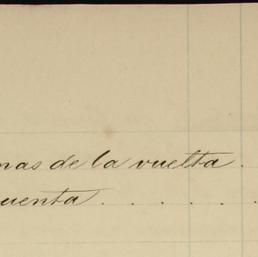 mas de la vuelta .
uenta . . . . .